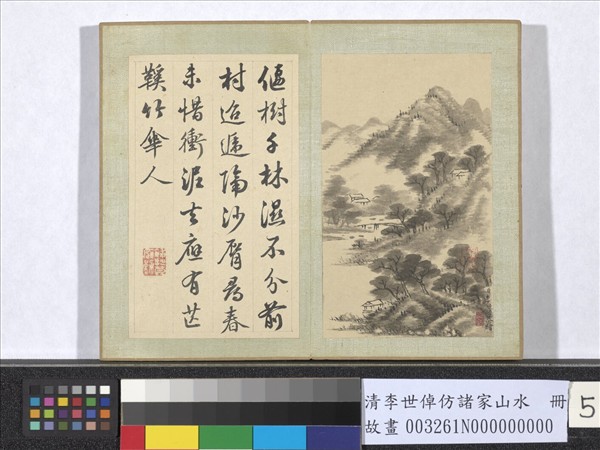 偃樹千林濕不分前
村迢遞隔沙脣尋春
未惜衝泥去應有芒
鞵竹傘人
清李世倬仿諸家山水　冊
故畫 003261N000000000
5